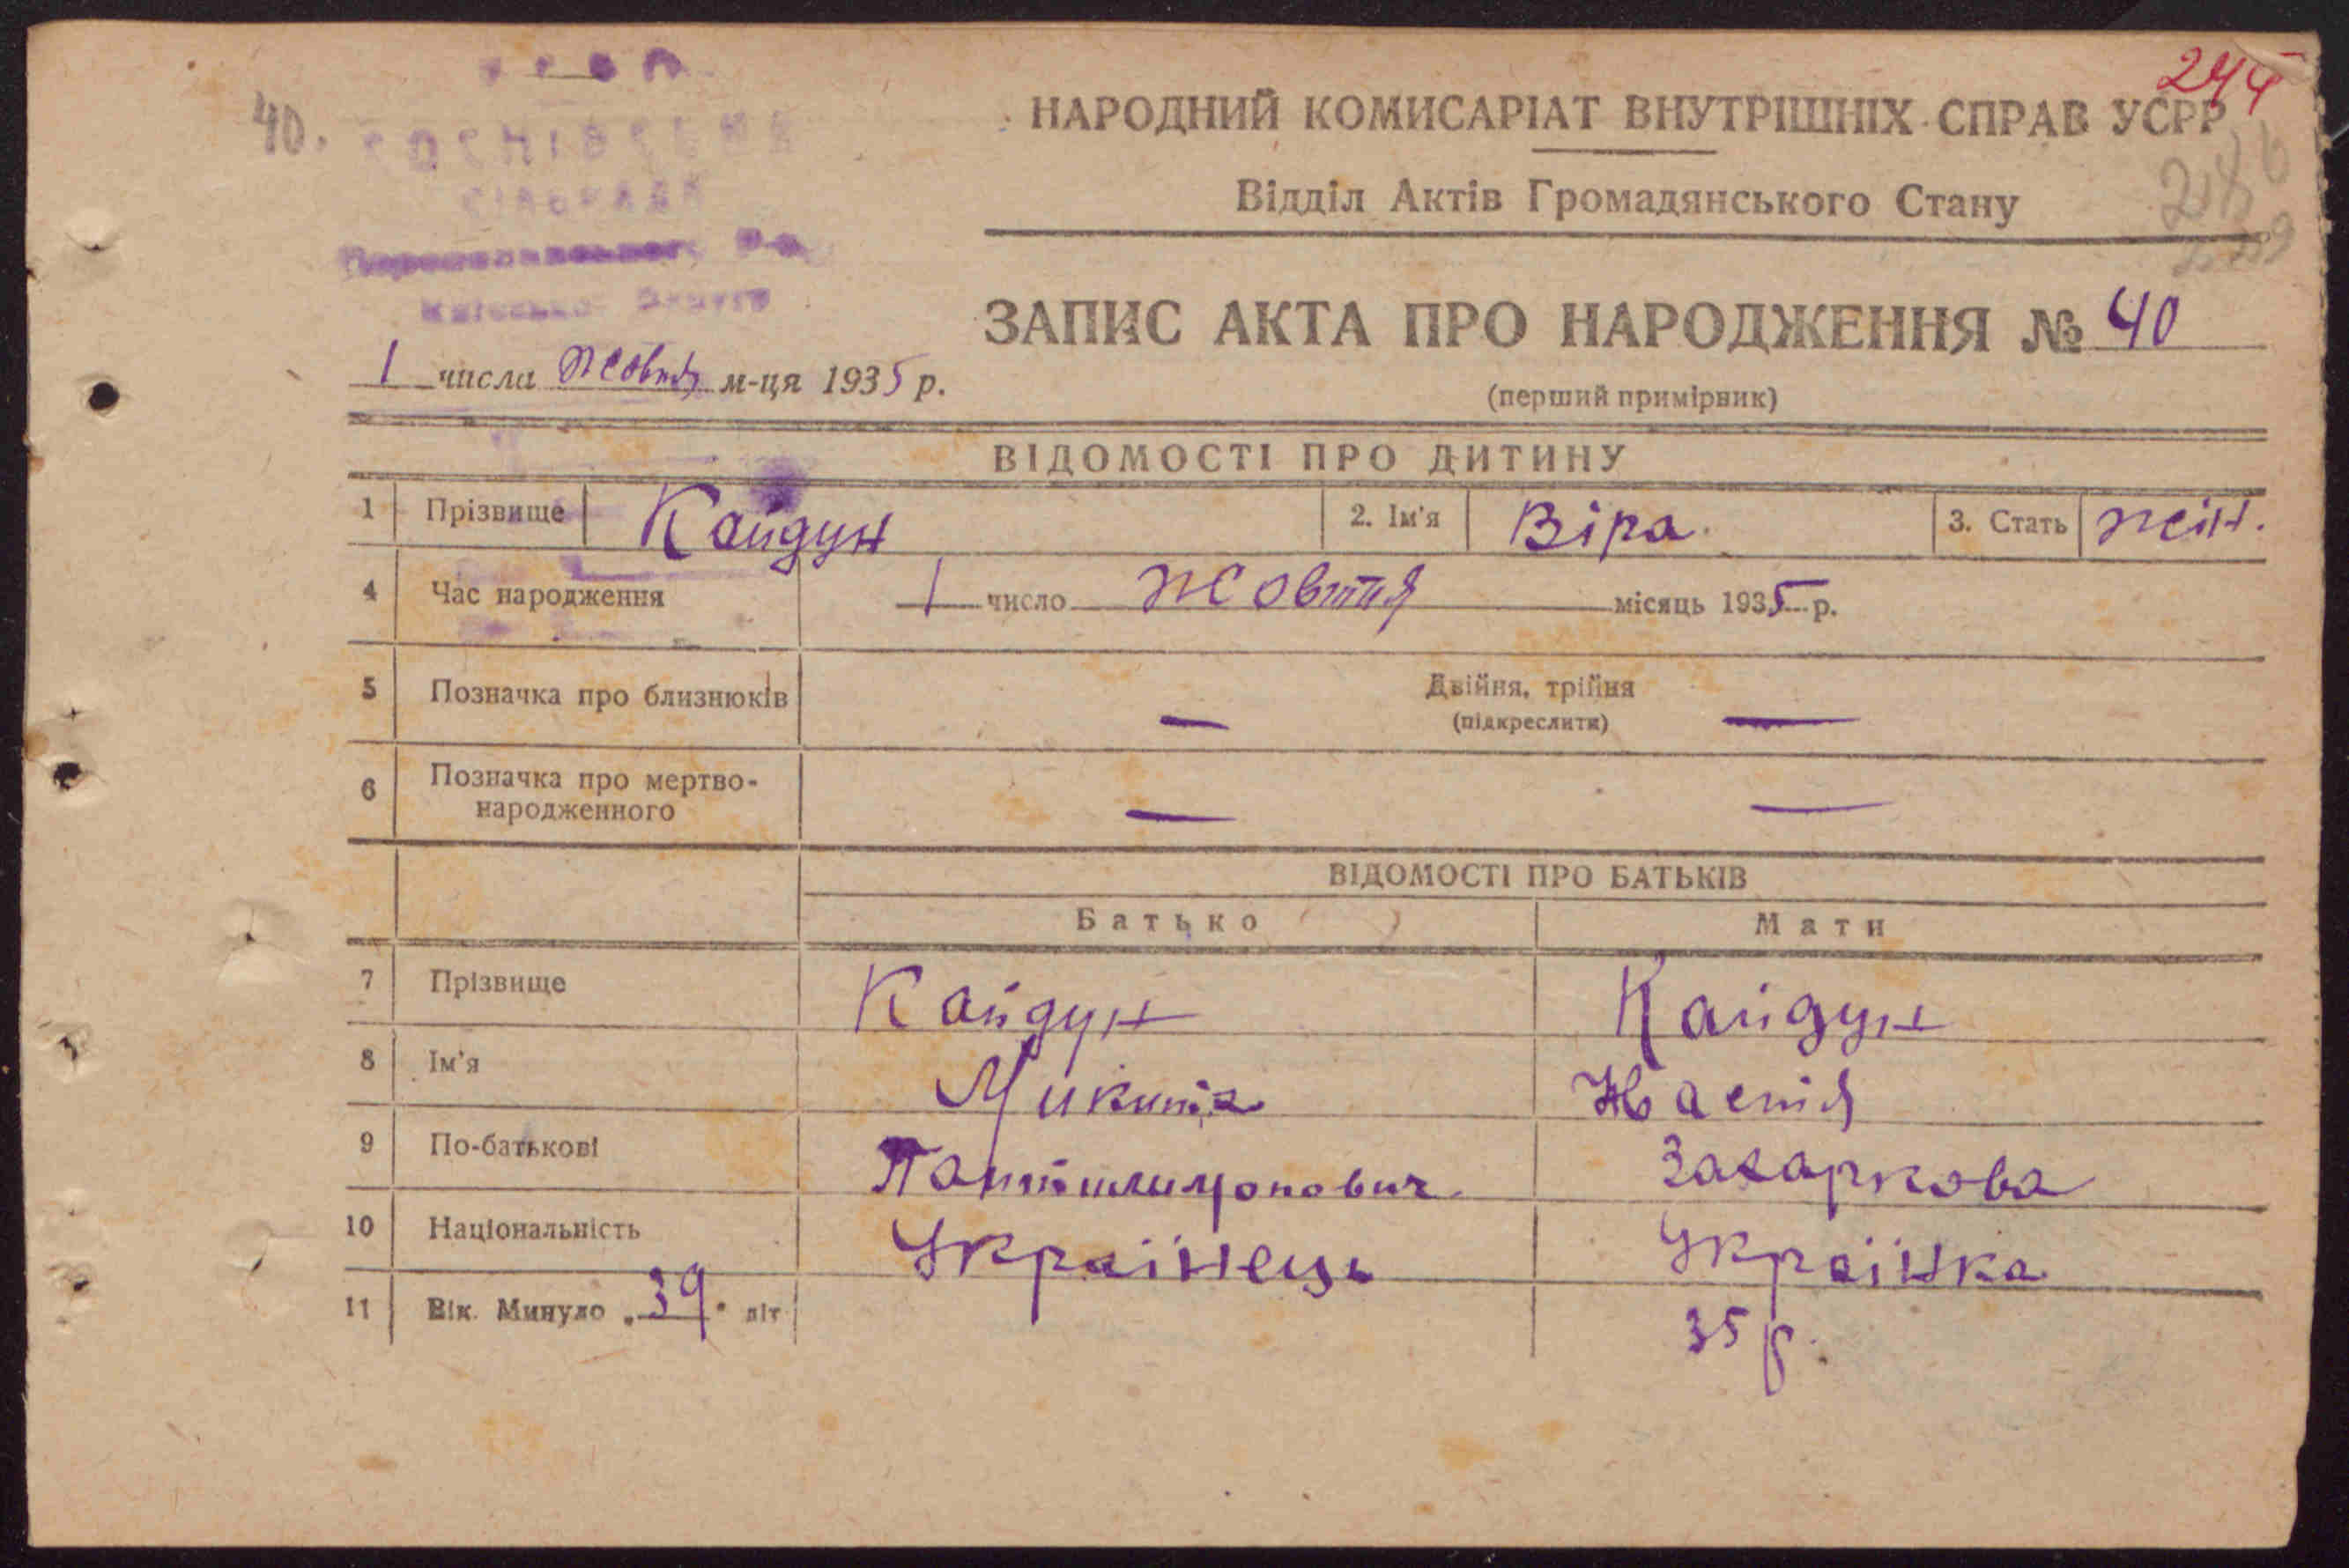 244
40.
УСРР
СОСНІВСЬКА
СІЛЬРАДА
НАРОДНИЙ КОМИСАРІАТ ВНУТРІШНІХ СПРАВ УСРР
Відділ Актів Громадянського Стану
ЗАПИС АКТА ПРО НАРОДЖЕННЯ № 40
1 числа жовтня м-ця 1935 р.
(перший примірник)
ВІДОМОСТІ ПРО ДИТИНУ
1 Прізвище Кайдун 2. Ім'я Віра. 3. Стать жін.
4 Час народження 1 число жовтня місяць 1935 р.
5 Позначка про близнюків — Двійня, трійня —
(підкреслити)
6 Позначка про мертво-
народженного — —
ВІДОМОСТІ ПРО БАТЬКІВ
Батько Мати
7 Прізвище Кайдун Кайдун
8 Ім'я Микита Настія
9 По-батькові Пантилимонович Захаркова
10 Національність Українець Українка
11 Вік. Минуло „39" літ 35 р.